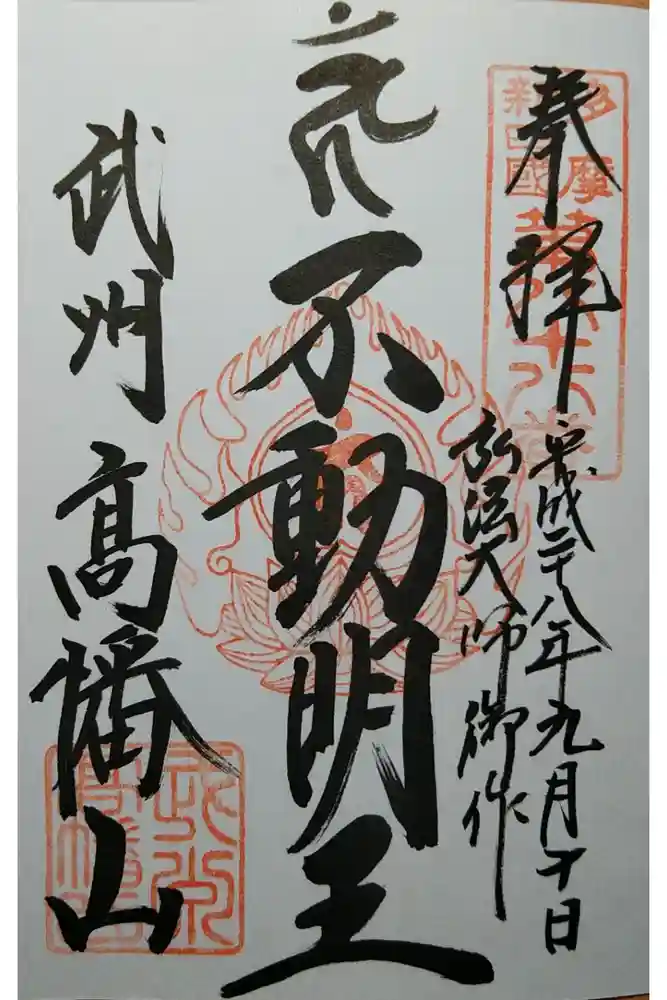 奉拝
平成二十八年九月十日
弘法大師御作
不動明王
武州
高幡山